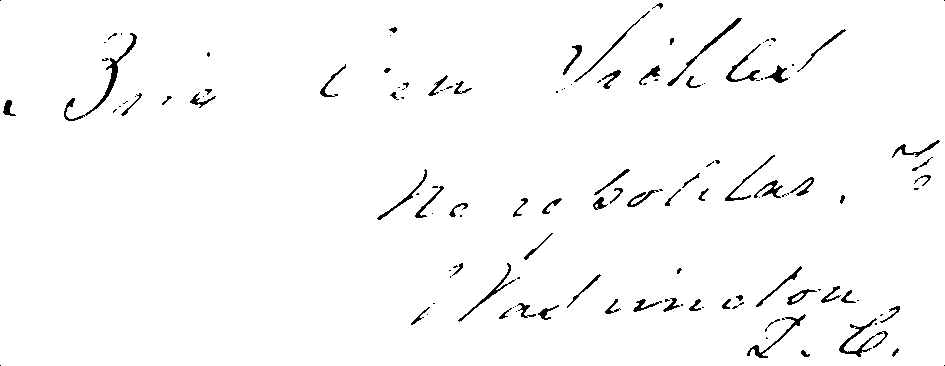 Brig Gen Sickles
Metropolitan.
Washington
D. C.